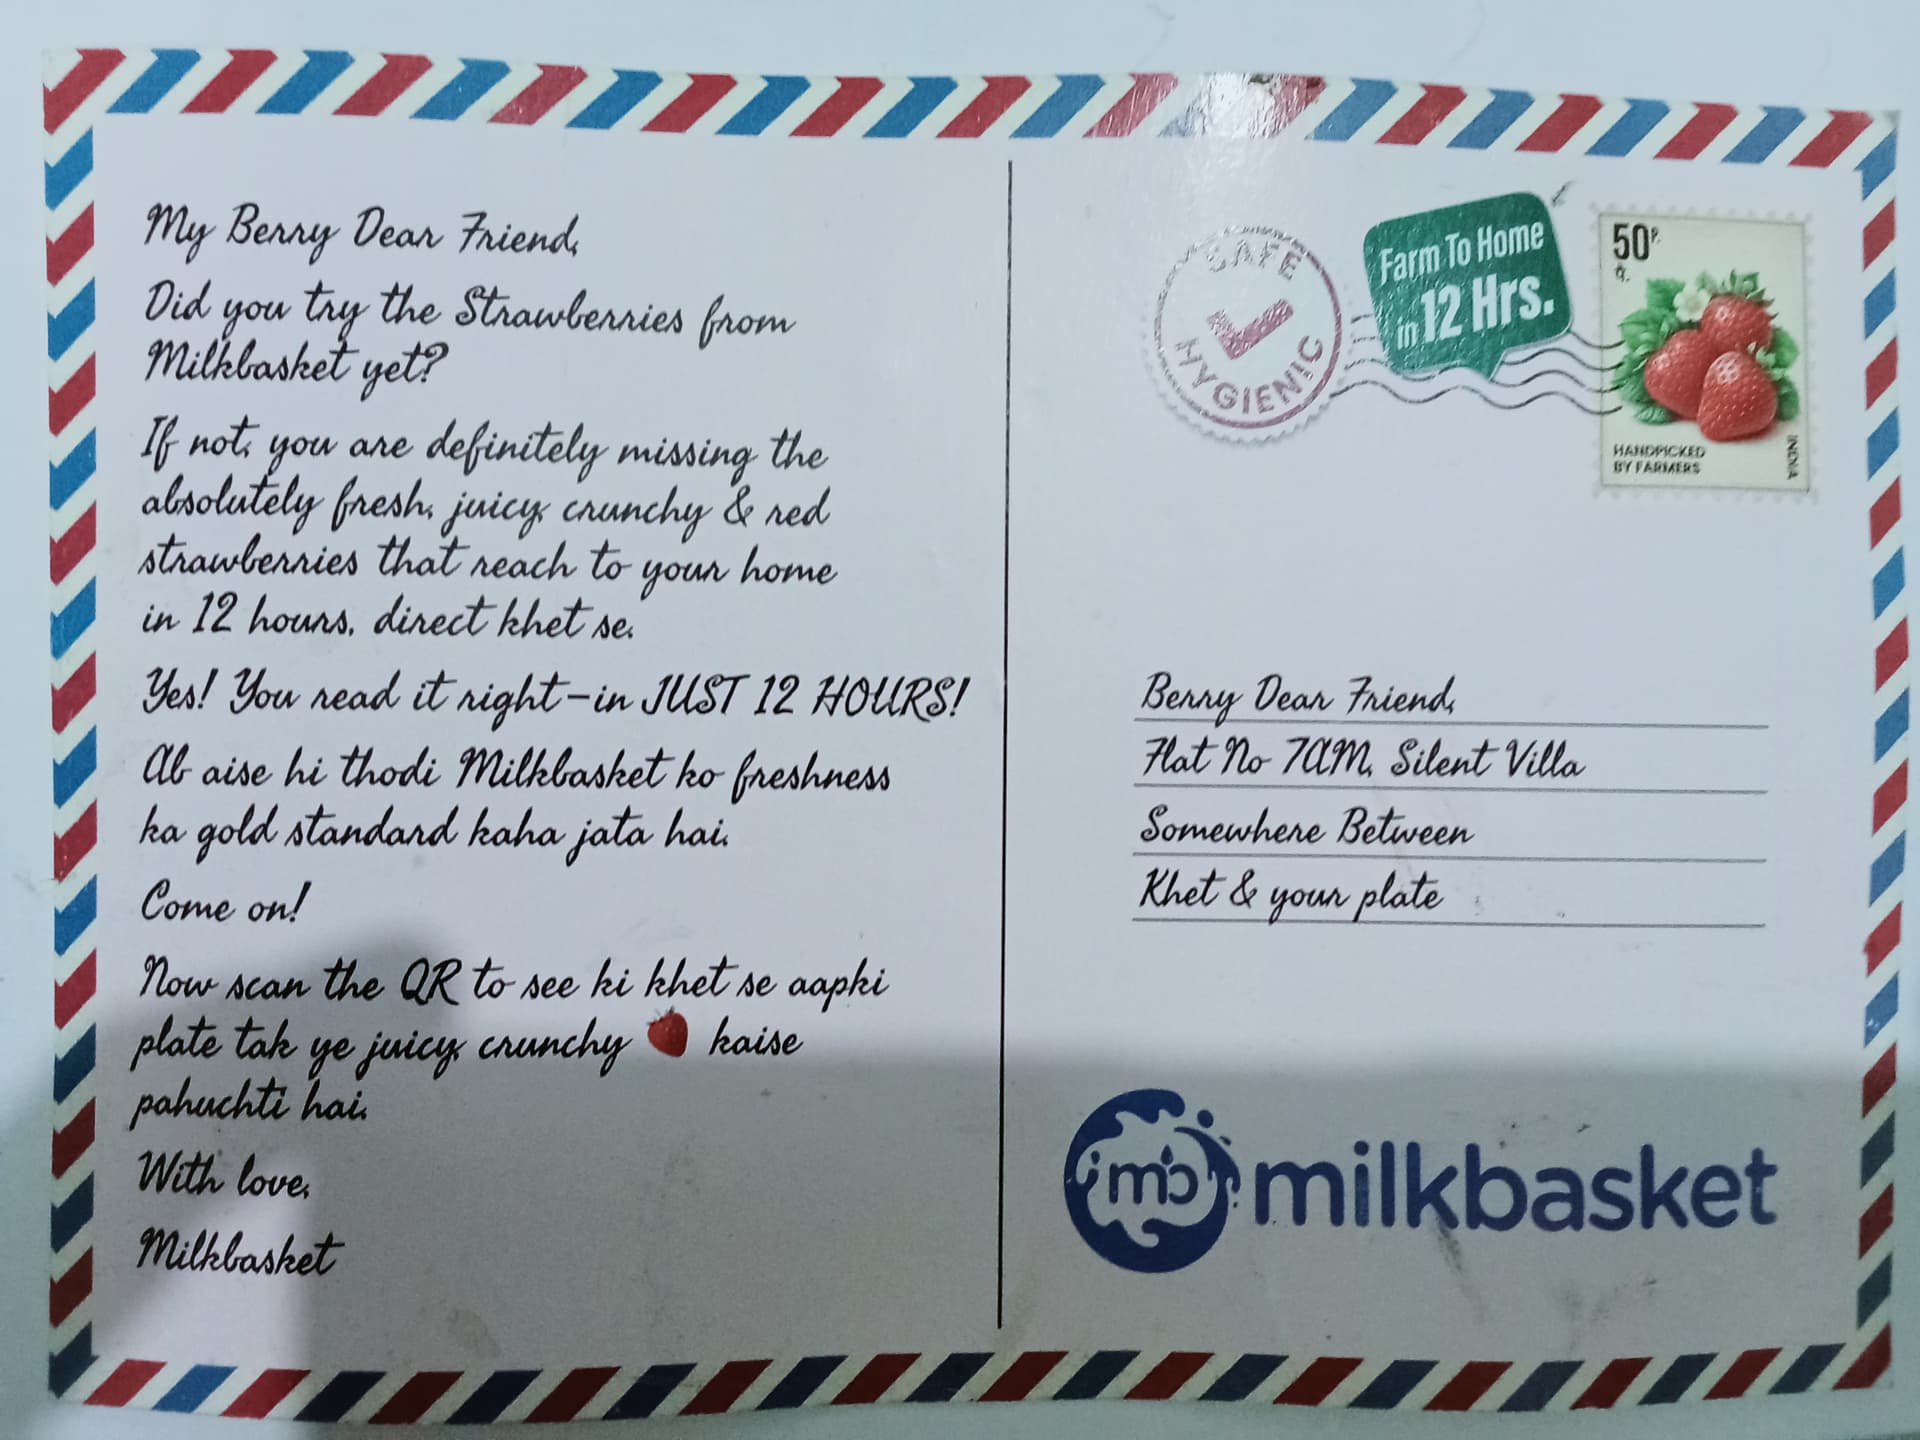 My Berry Dear Friend,
Did you try the Strawberries from
Milkbasket yet?
If not, you are definitely missing the
absolutely fresh, juicy, crunchy & red
strawberries that reach to your home
in 12 hours, direct khet se.
Yes! You read it right-in JUST 12 HOURS!
Ab aise hi thodi Milkbasket ko freshness
ka gold standard kaha jata hai.
Come on!
Now scan the QR to see ki khet se aapki
plate tak ye juicy, crunchy kaise
pahuchti hai.
With love,
Milkbasket
SAFE
HYGIENIC
Farm To Home
in 12 Hrs.
50P.
HANDPICKED
BY FARMERS
INDIA
Berry Dear Friend,
Flat No 7AM, Silent Villa
Somewhere Between
Khet & your plate
mb
milkbasket